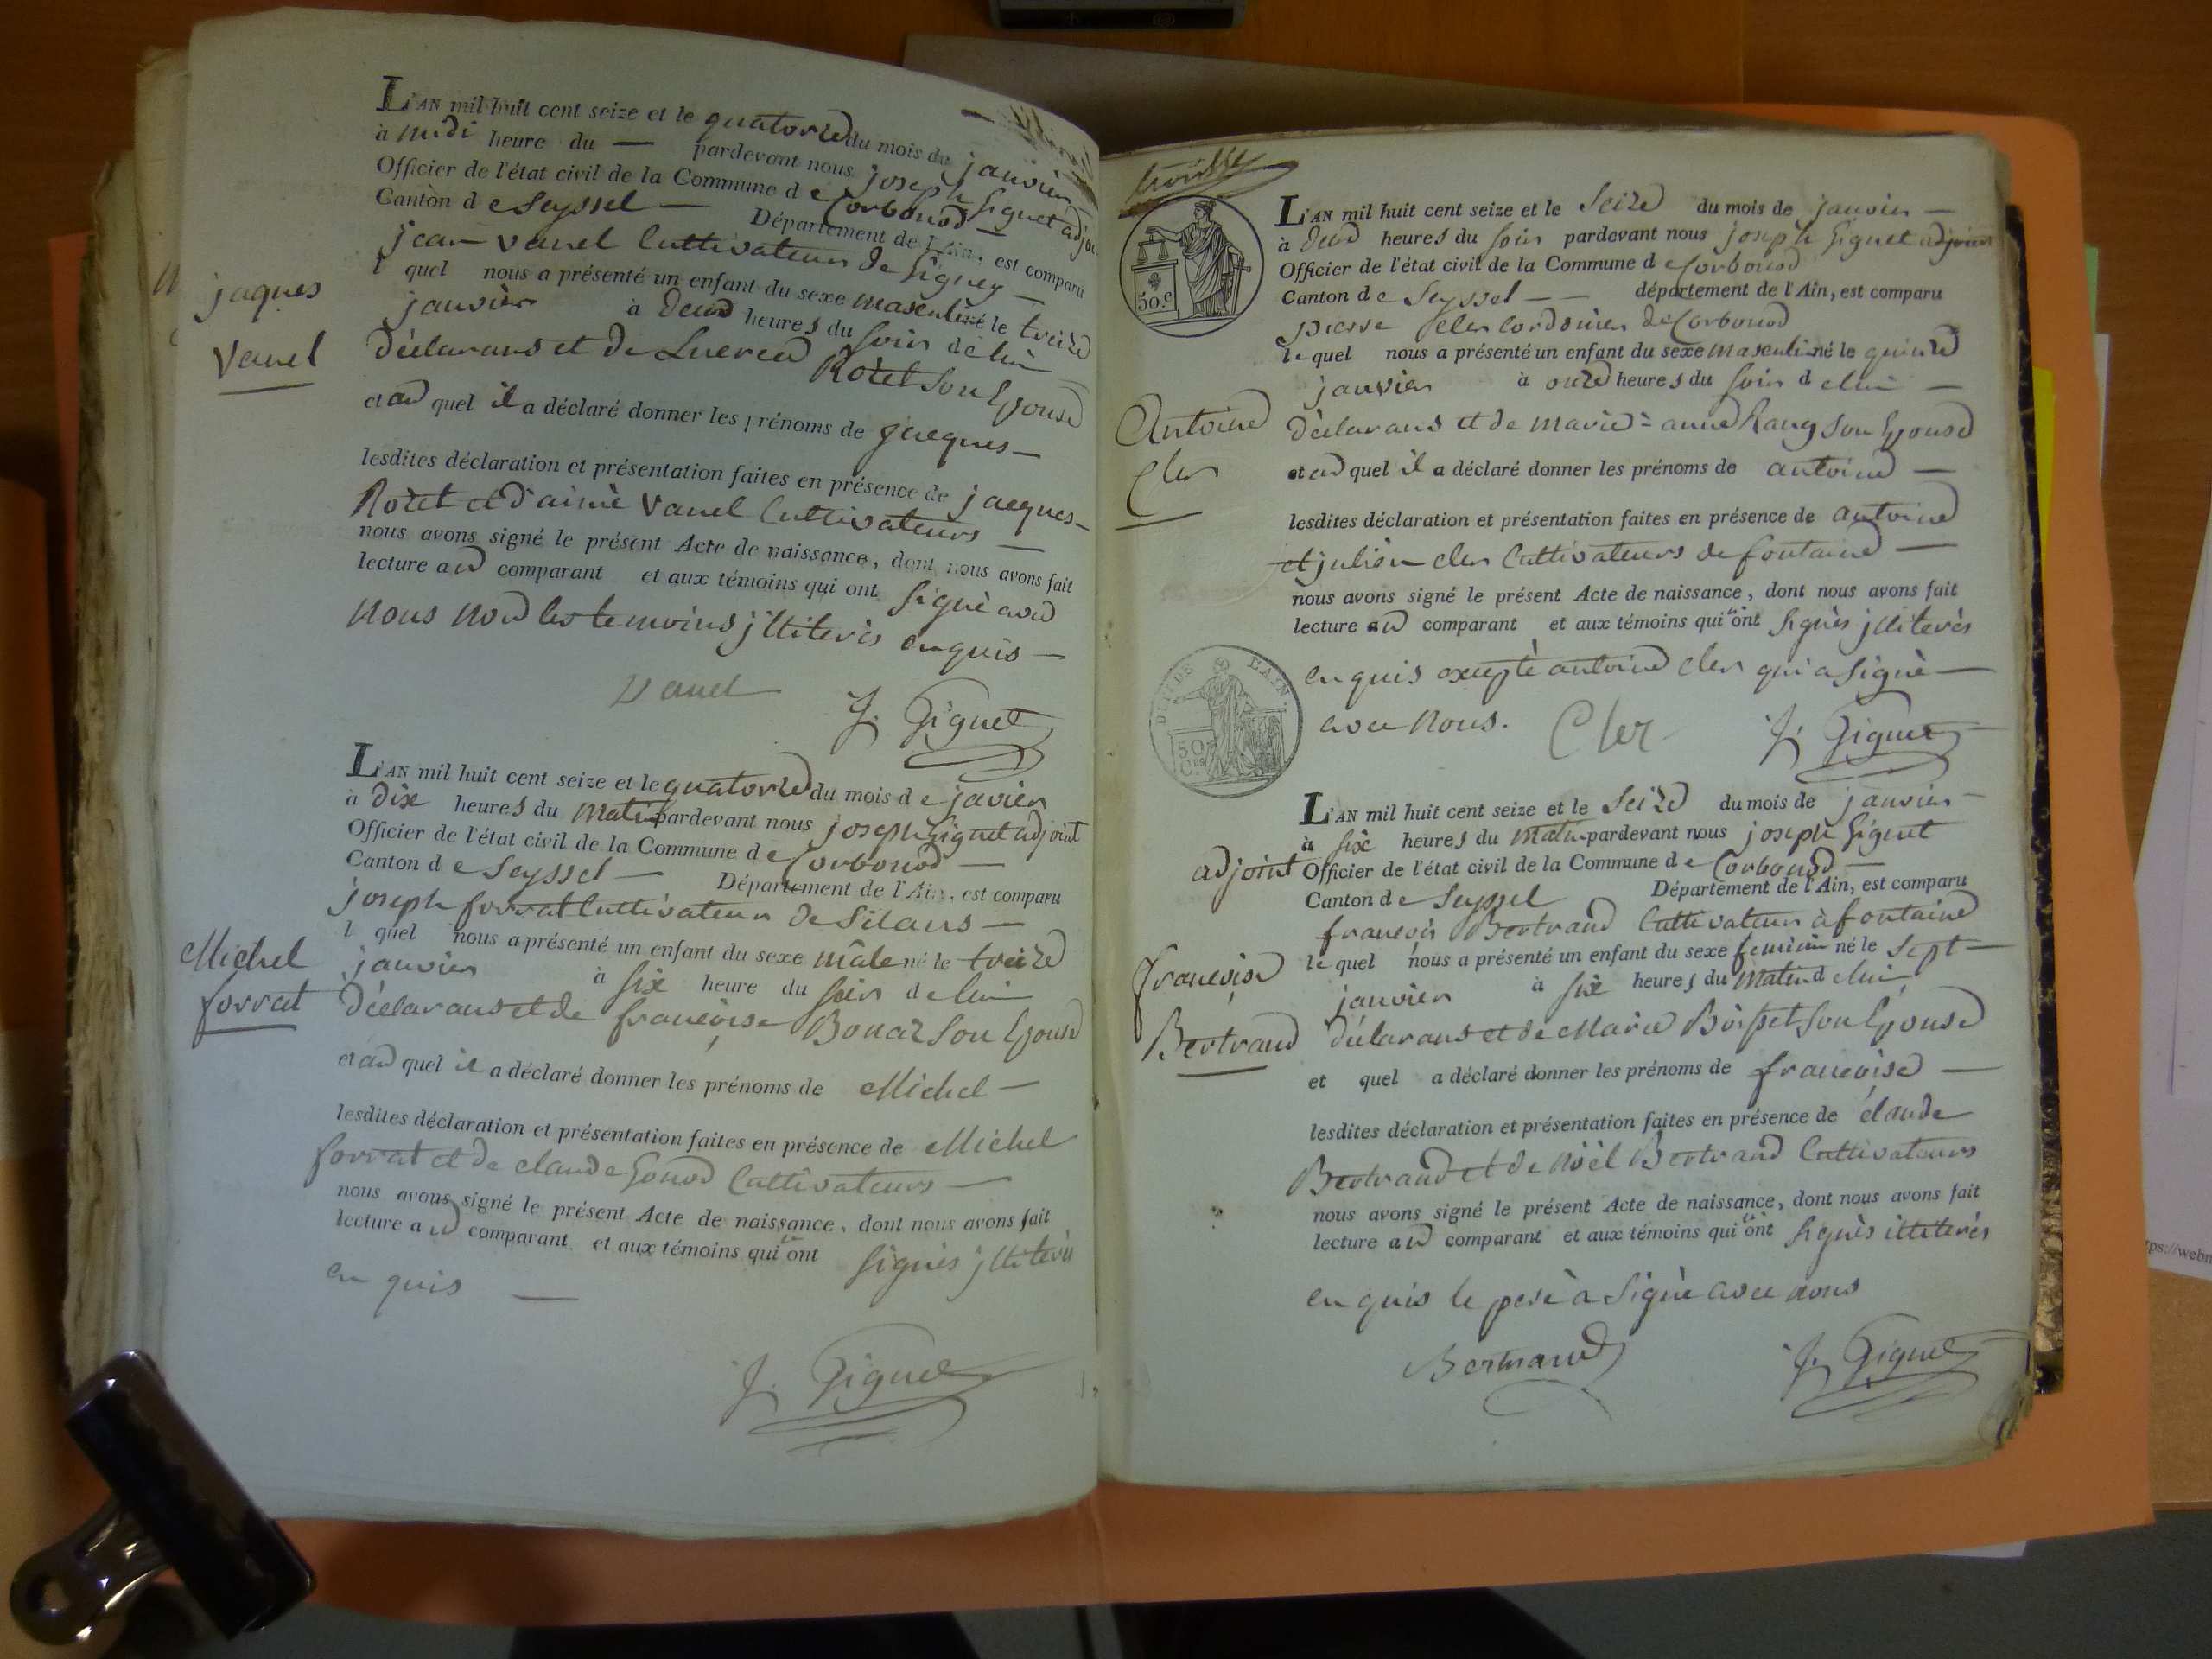 L'AN mil huit cent seize et le quatorze du mois du janvier
à midi heure du — pardevant nous joseph Giguet adjoi
Officier de l'état civil de la Commune de Corbonod —
Canton de Seyssel — Département de l'Ain, est comparu
jean vanel Cultivateur de Gigney —
l quel nous a présenté un enfant du sexe masculin né le treize
janvier à deux heures du soir de lui
jaques
vanel
déclarans et de Lucrece Rotet son Epouse
et au quel il a déclaré donner les prénoms de jacques —
lesdites déclaration et présentation faites en présence de jacques —
Rotet et d'aimé vanel Cultivateurs —
nous avons signé le présent Acte de naissance, dont nous avons fait
lecture au comparant et aux témoins qui ont signé avec
nous non les temoins jlliterés enquis —
Vanel J. Giguet
L'AN mil huit cent seize et le quatorze du mois de javier
à dix heures du matin pardevant nous joseph Giguet adjoint
Officier de l'état civil de la Commune de Corbonod —
Canton de Seyssel — Département de l'Ain, est comparu
joseph forrat Cultivateur de Silans —
l quel nous a présenté un enfant du sexe mâle né le treize
janvier à six heure du soir de lui
Michel
forrat
déclarans et de francoise Bonaz son Epouse
et au quel il a déclaré donner les prénoms de Michel —
lesdites déclaration et présentation faites en présence de Michel
forrat et de claude Gonod Cultivateurs —
nous avons signé le présent Acte de naissance, dont nous avons fait
lecture au comparant et aux témoins qui n'ont signés jlliterés
en quis —
J. Giguet
50.c
L'AN mil huit cent seize et le seize du mois de janvier —
à deux heures du soir pardevant nous joseph Giguet adjoint
Officier de l'état civil de la Commune de Corbonod
Canton de Seyssel — — département de l'Ain, est comparu
pierre cler cordonier de Corbonod
le quel nous a présenté un enfant du sexe masculin né le quinze
janvier à onze heures du soir de lui —
Antoine
Cler
déclarans et de marie = anne Rang son Epouse
et au quel il a déclaré donner les prénoms de antoine —
lesdites déclaration et présentation faites en présence de antoine
et julien cler Cultivateurs de fontaine —
nous avons signé le présent Acte de naissance, dont nous avons fait
lecture au comparant et aux témoins qui n'ont signés jlliterés
enquis excepté antoine cler qui a signé —
avec nous. Cler J. Giguet
DE L'AIN.
50 Ces
L'AN mil huit cent seize et le seize du mois de janvier —
à six heures du matin pardevant nous joseph Giguet
adjoint Officier de l'état civil de la Commune de Corbonod —
Canton de Seyssel Département de l'Ain, est comparu
francois Bertrand Cultivateur à fontaine
le quel nous a présenté un enfant du sexe feminin né le sept —
janvier à six heures du matin de lui
francoise
Bertrand
déclarans et de Marie son Epouse
et quel a déclaré donner les prénoms de francoise —
lesdites déclaration et présentation faites en présence de claude
Bertrand et de Nöel Bertrand Cultivateurs
nous avons signé le présent Acte de naissance, dont nous avons fait
lecture au comparant et aux témoins qui n'ont signés illiterés
enquis le peré à signé avec nous
Bertrand J. Giguet